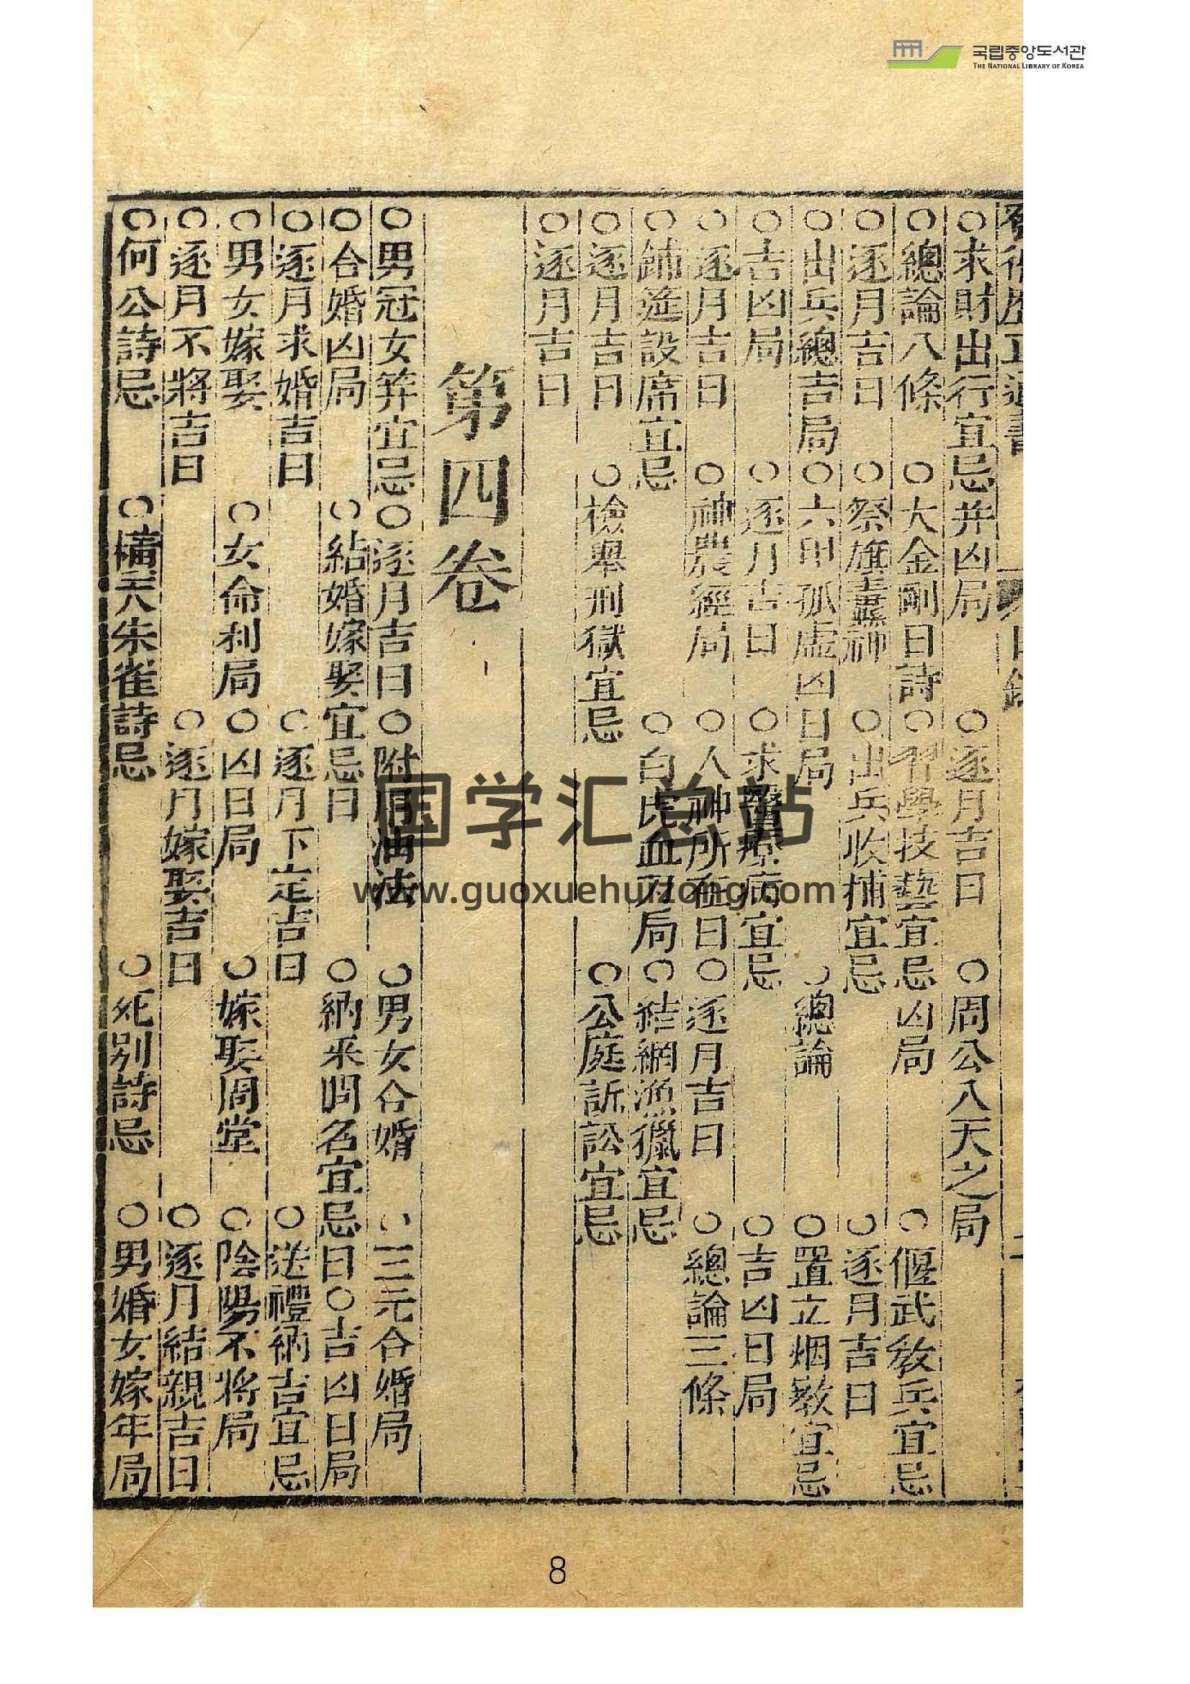 국립중앙도서관
THE NATIONAL LIBRARY OF KOREA
○求財出行宜忌并凶局○逐月吉日○周公八天之局
○總論八條○大金剛日詩○習學技藝宜忌凶局○偃武教兵宜忌
○逐月吉日○祭旗纛神○出兵收捕宜忌○逐月吉日
○出兵總吉局○六甲孤虛凶日局○總論○置立烟墩宜忌
○吉凶局○逐月吉日○求醫療病宜忌○吉凶日局
○逐月吉日○神農經局○人神所在日○逐月吉日○總論三條
○鋪筵設席宜忌○白虎血刃局○結網漁獵宜忌
○逐月吉日○檢舉刑獄宜忌○公庭訴訟宜忌
○逐月吉日
第四卷
○男冠女笄宜忌○逐月吉日○附用油法○男女合婚○三元合婚局
○合婚凶局○結婚嫁娶宜忌日○納采問名宜忌日○吉凶日局
○逐月求婚吉日○逐月下定吉日○送禮納吉宜忌
○男女嫁娶○女命利局○凶日局○嫁娶周堂○陰陽不將局
○逐月不將吉日○逐月嫁娶吉日○逐月結親吉日
○何公詩忌○橫天朱雀詩忌○死別詩忌○男婚女嫁年局
国学汇总站
www.guoxuehuizong.com
8